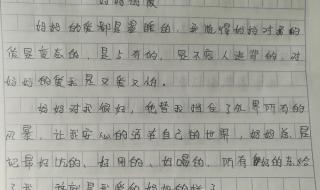 妈妈的爱都是最暖的,
爱是变态的,是占有的,是不容人逃离的,对
妈妈的爱我是又爱又怕。
妈妈对我很好,她替我挡住了外界所有的
风景,让我安心的活着自己的世界,妈妈总是
把最好吃的、好用的、好喝的,所有好的东西给
了我,我就是我爱的妈妈的样子